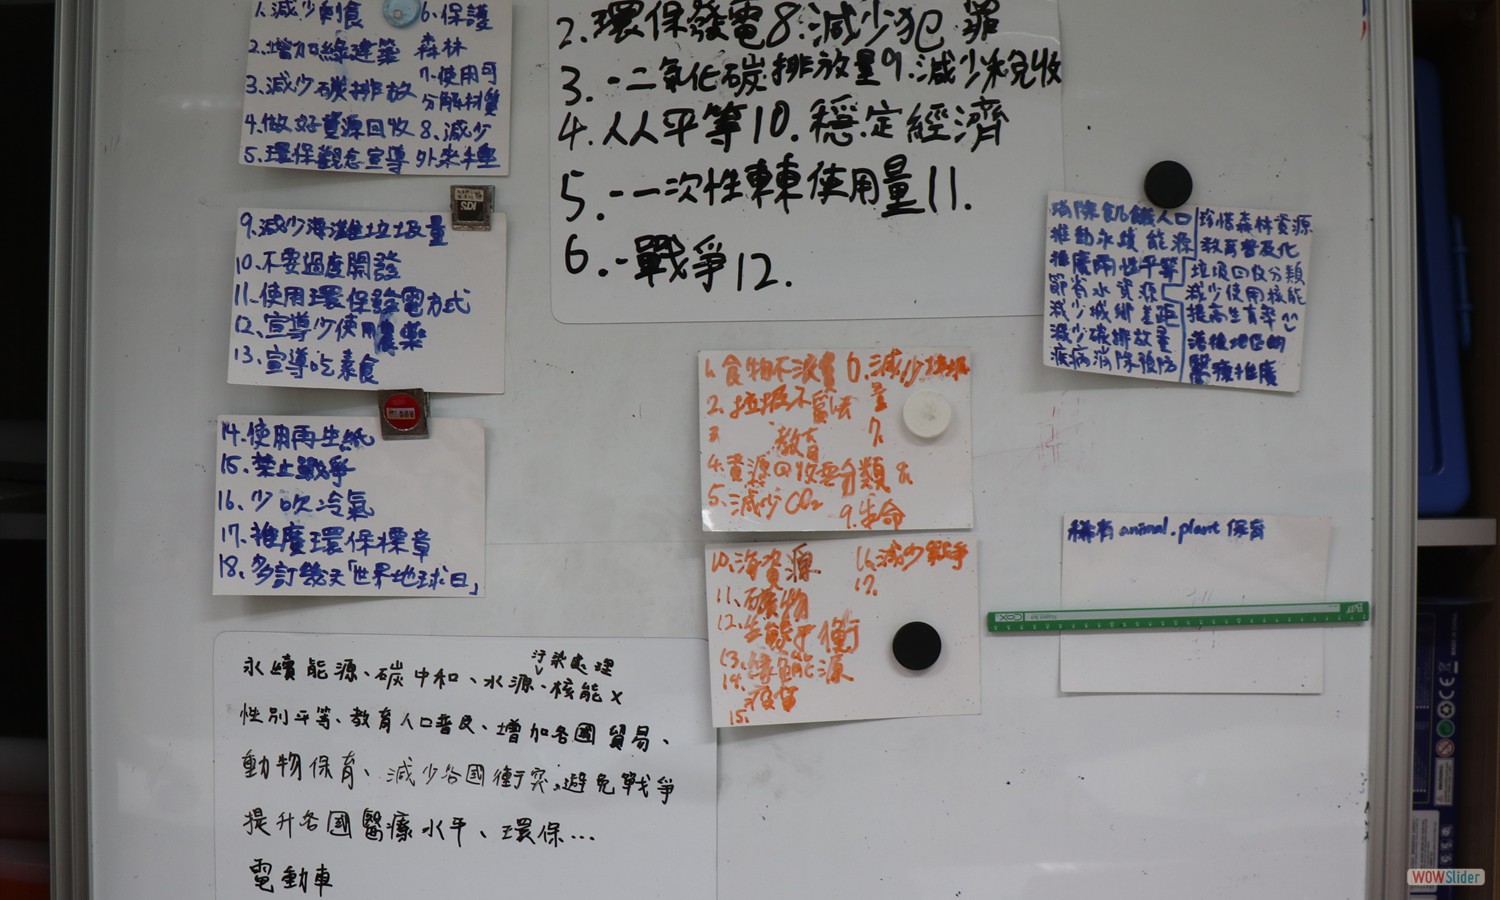 1.減少剩食 6.保護
2.增加綠建築 森林
3.減少碳排放 7.使用可
分解材質
4.做好資源回收 8.減少
5.環保觀念宣導 外來種
9.減少海灘垃圾量
10.不要過度開發
11.使用環保發電方式
12.宣導少使用農藥
13.宣導吃素食
14.使用再生紙
15.禁止戰爭
16.少吹冷氣
17.推廣環保標章
18.多訂幾天「世界地球日」
2.環保發電 8.減少犯罪
3.-二氧化碳排放量 9.減少稅收
4.人人平等 10.穩定經濟
5.-一次性車車使用量 11.
6.-戰爭 12.
消除飢餓人口
推動永續能源
推廣兩性平等
節省水資源
減少城鄉差距
減少碳排放量
疾病消除預防
珍惜森林資源
教育普及化
垃圾回收分類
減少使用核能
提高生育率
落後地區的
醫療推廣
1.食物不浪費 6.減少垃圾
2.垃圾不 量
3. 教育 7.
4.資源回收要分類 8.
5.減少CO₂ 9.生命
10.海資源 16.減少戰爭
11.礦物 17.
12.生態平衡
13.綠電能源
14.疫苗
15.
稀有animal.plant保育
永續能源、碳中和、水源、核能x
污染處理
性別平等、教育人口普良、增加各國貿易、
動物保育、減少各國衝突、避免戰爭
提升各國醫療水平、環保...
電動車
SDI
COX
WOWSlider